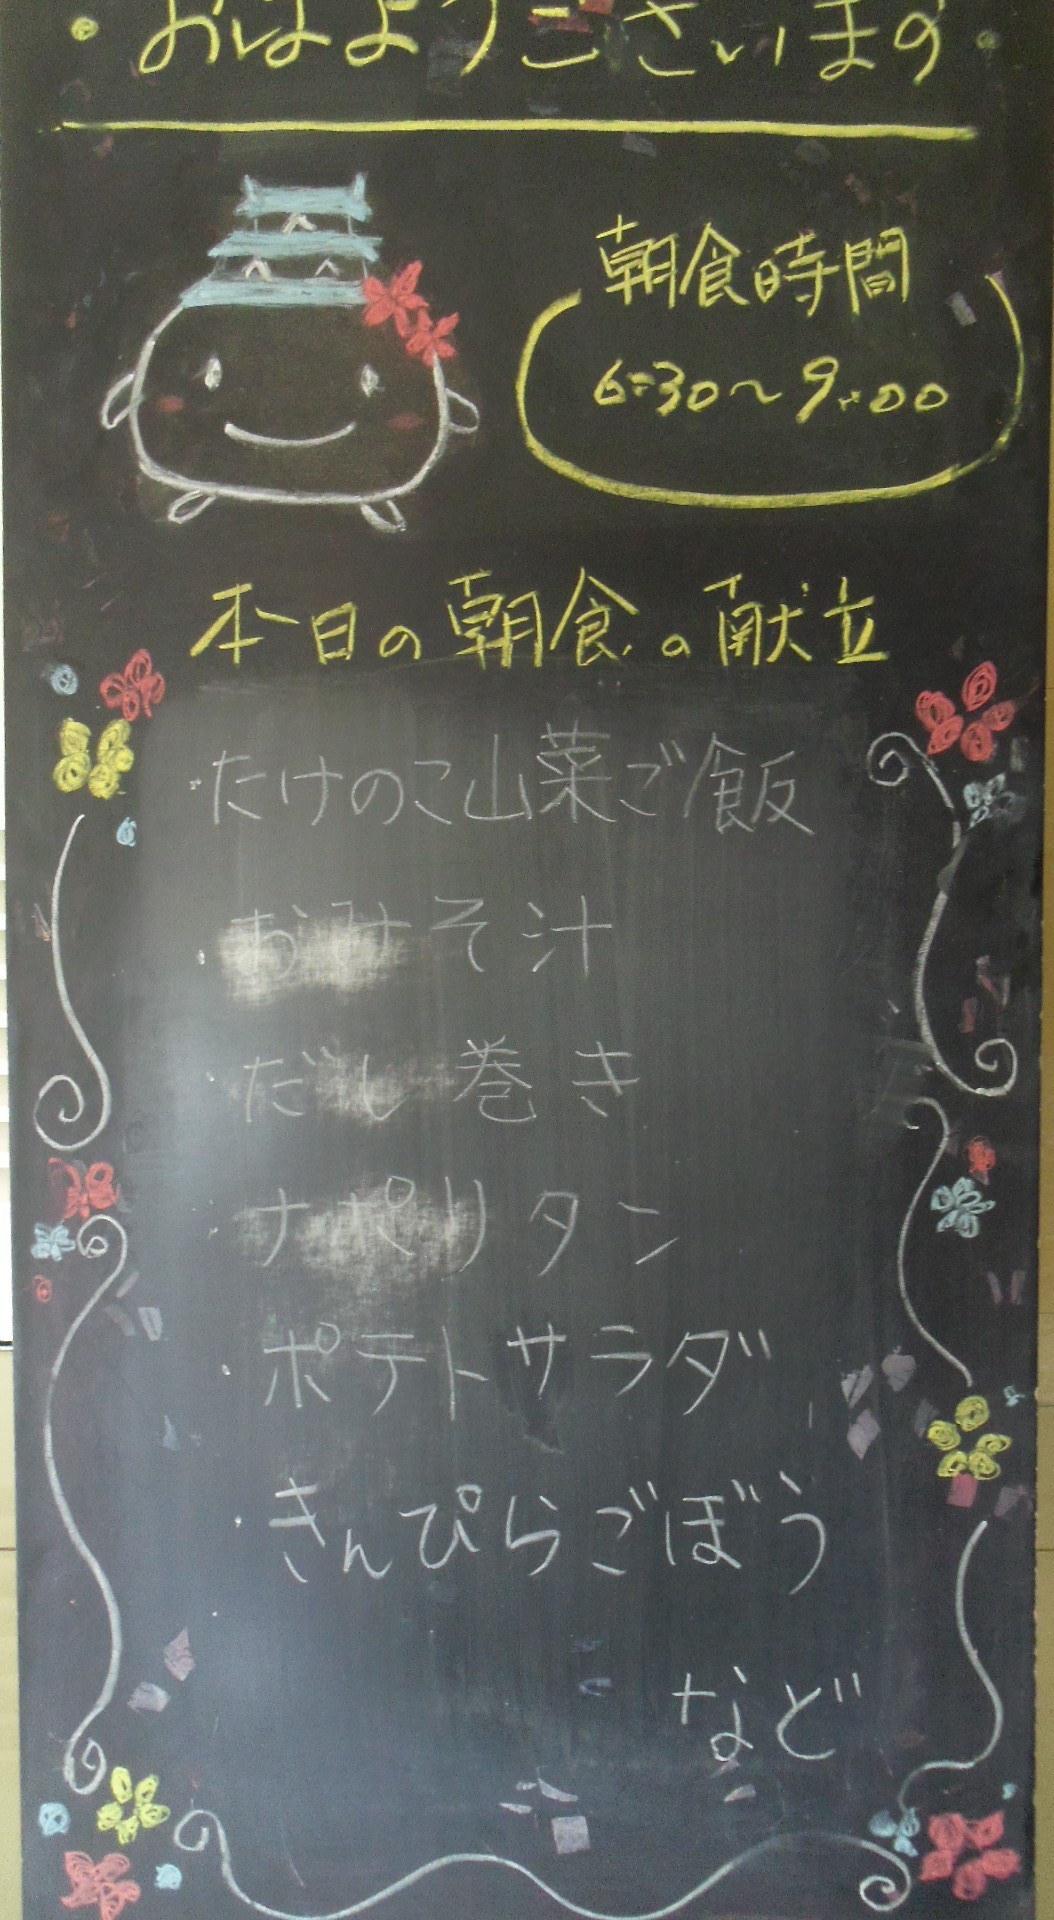 ・おはようございます・
朝食時間
6:30〜9:00
本日の朝食の献立
・たけのこ山菜ご飯
・おみそ汁
・だし巻き
・ナポリタン
・ポテトサラダ
・きんぴらごぼう
など